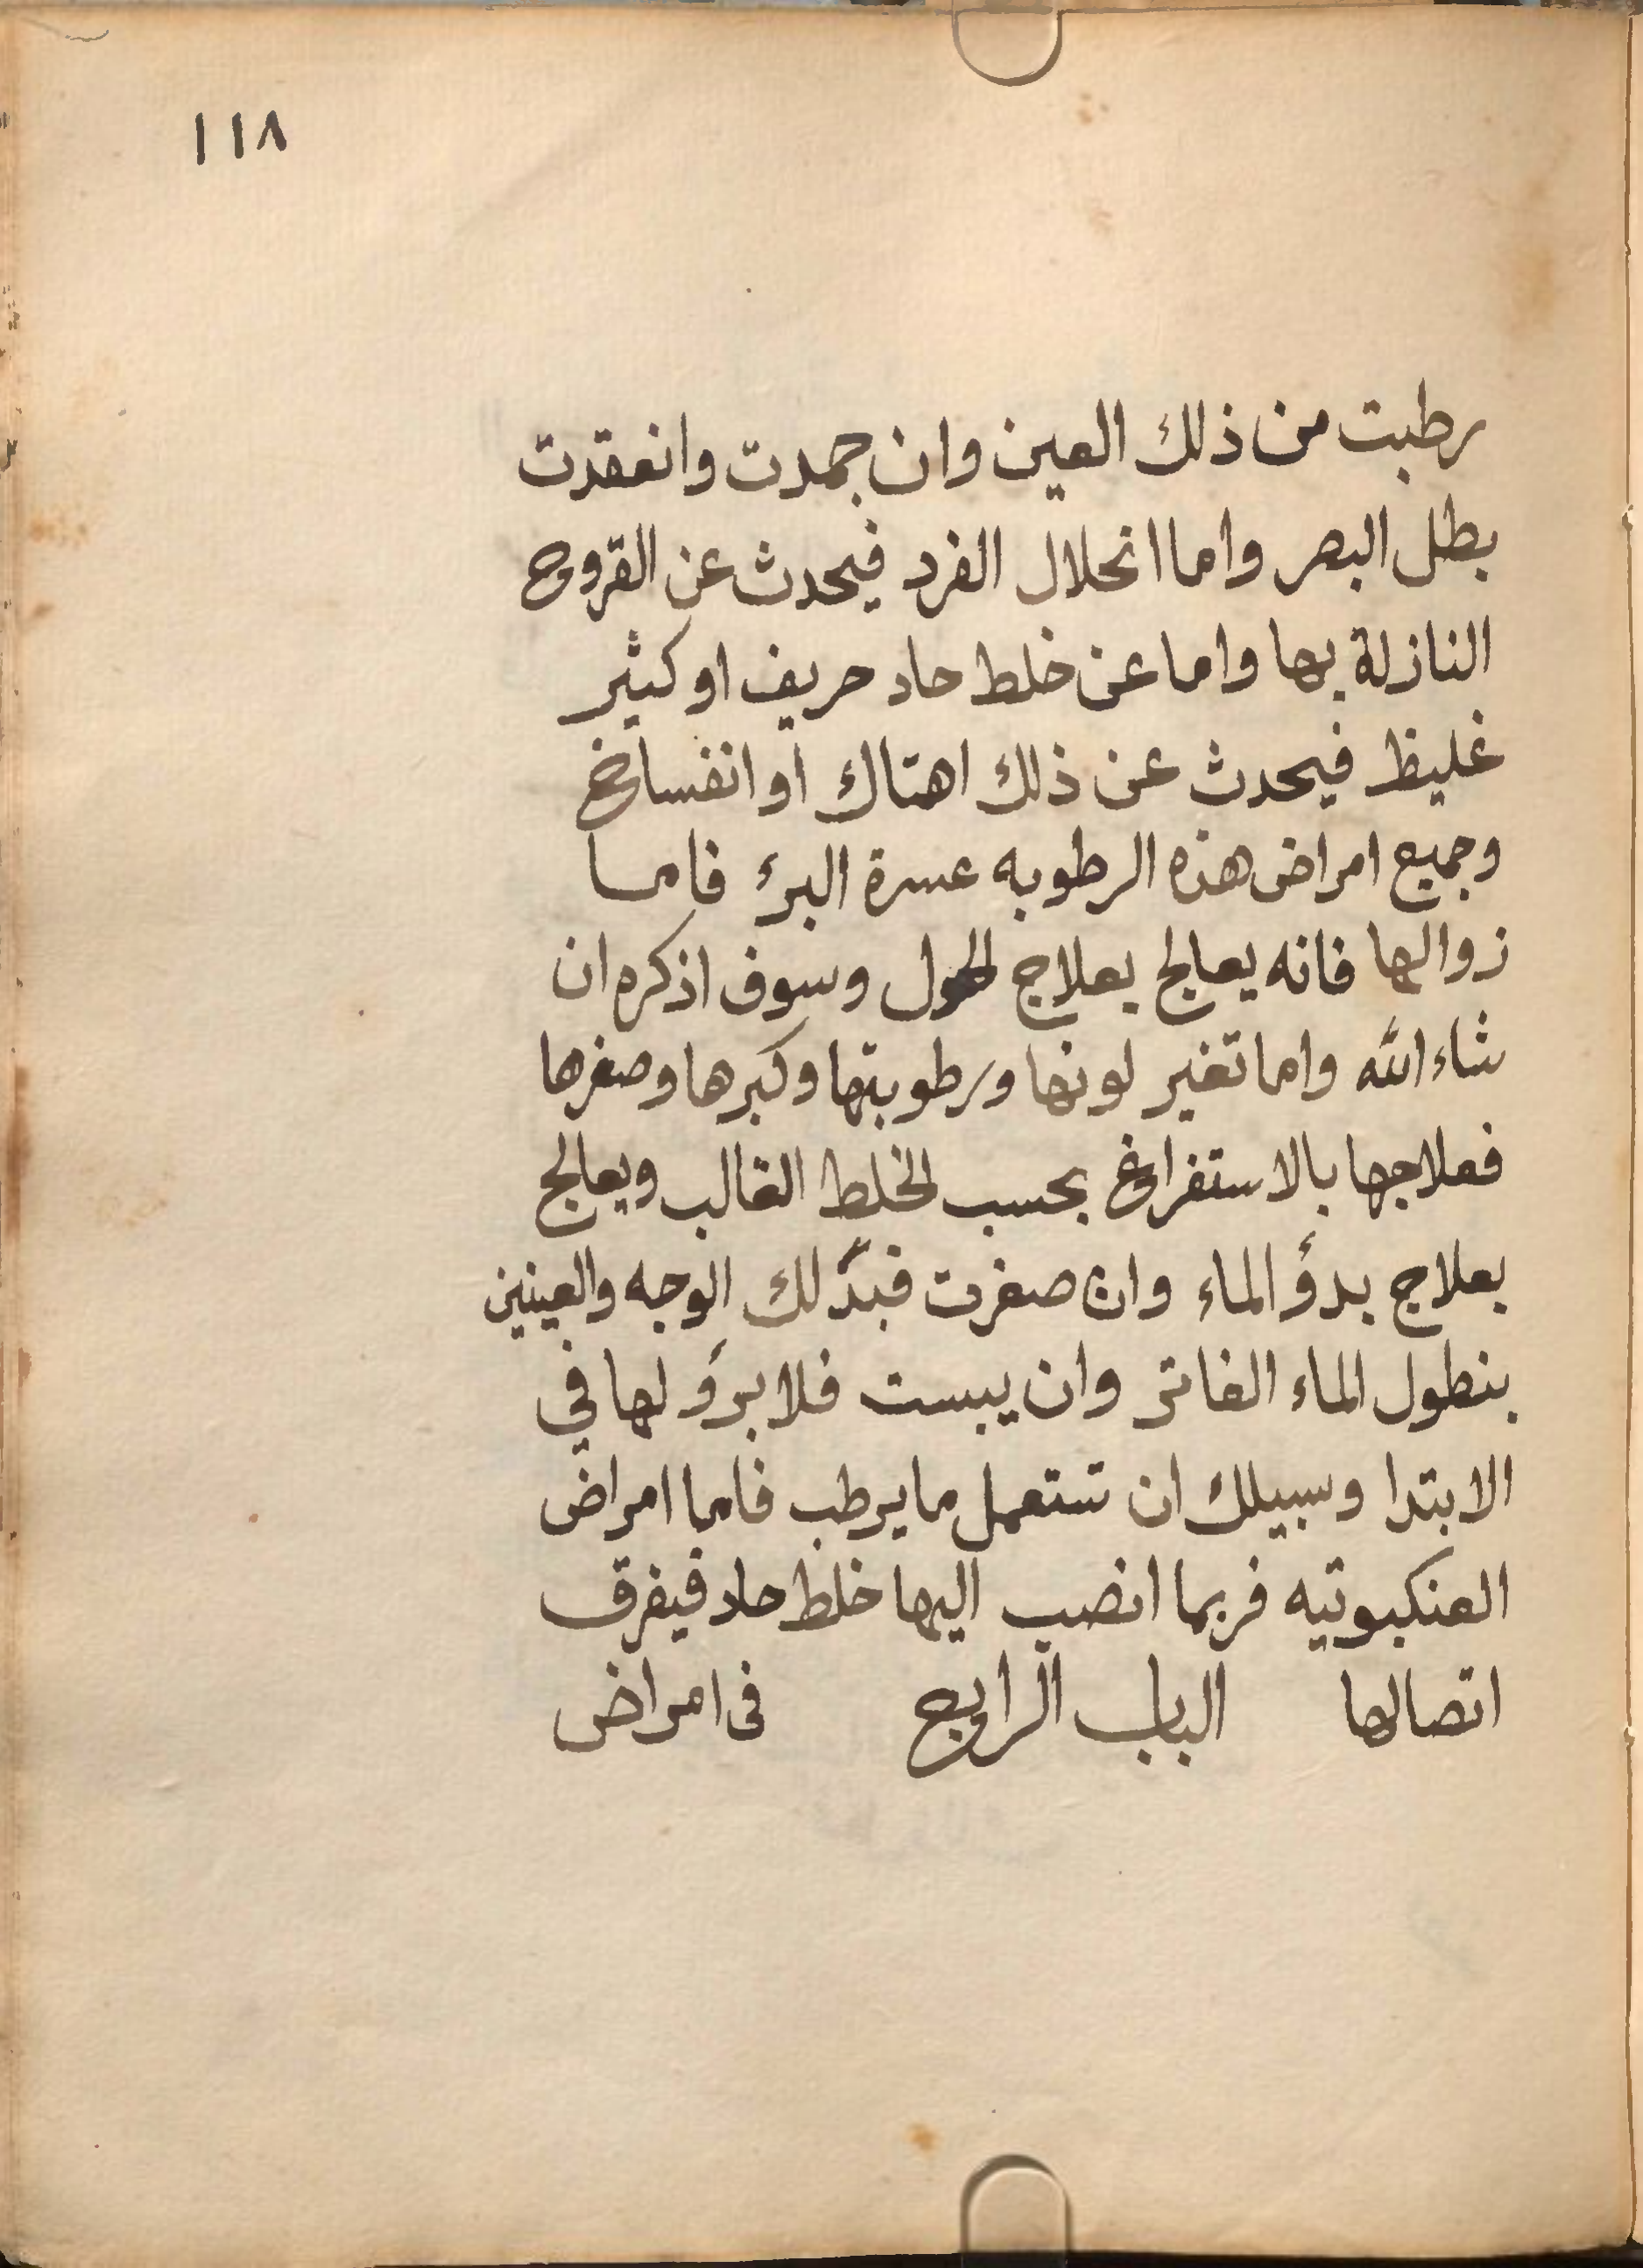 ١١٨
رطبت من ذلك العين وان جمدت وانعقدت
بطل البصر واما انحلال الفرد فيحدث عن القروح
النازلة بها واما عن خلط حاد حريف او كثير
غليظ فيحدث عن ذلك اهتاك او انفساخ
وجميع امراض هذه الرطوبه عسرة البرء فاما
زوالها فانه يعالج بعلاج الحول وسوف اذكره ان
شاء الله واما تغير لونها ورطوبتها وكبرها وصغرها
فعلاجها بالاستفراغ بحسب الخلط الغالب ويعالج
بعلاج بدؤ الماء وان صغرت فبدلك الوجه والعينين
بنطول الماء الفاتر وان يبست فلا برؤ لها في
الابتدا وسبيلك ان تستعمل ما يرطب فاما امراض
العنكبوتيه فربما انصب اليها خلط حاد فيفرق
اتصالها الباب الرابع فى امراض